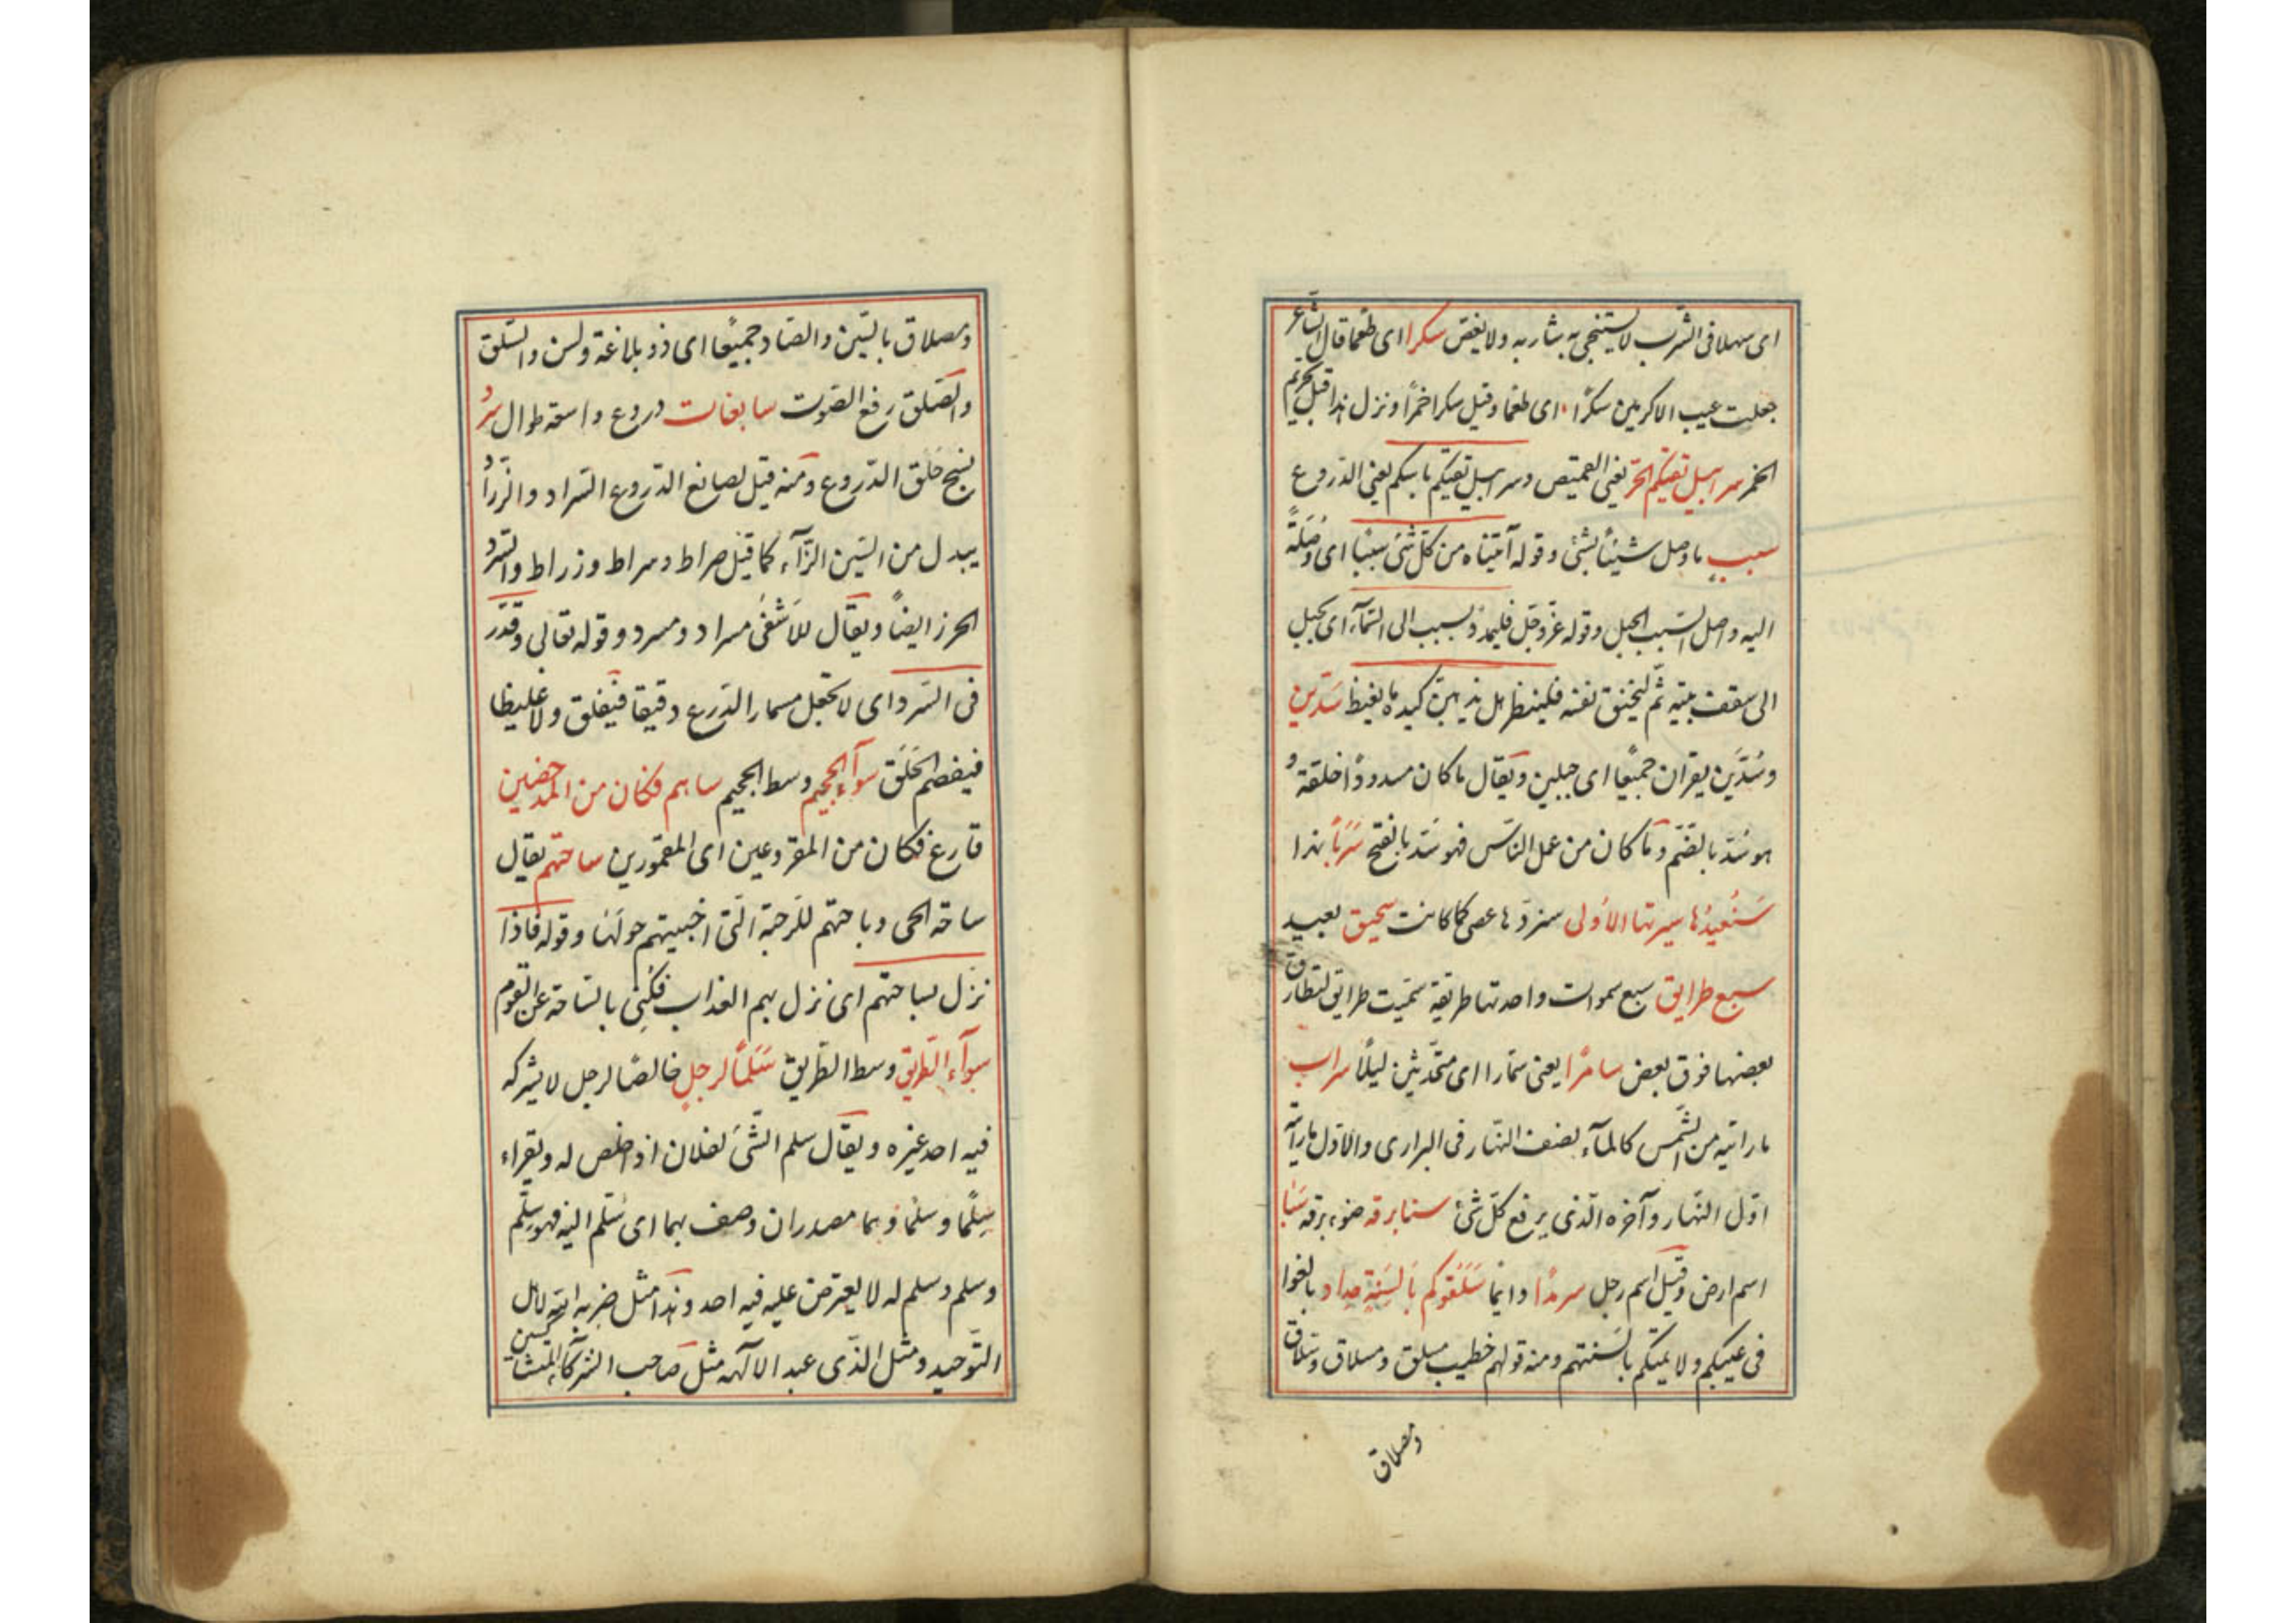 اى سهلا فى الشرب لا يستنجى به شاربه ولا يغص سكرا اى طعما قال الشاعر
جعلت عيب الاكرمين سكرًا اى طعما وقيل سكرا خمرًا ونزل هذا قبل تحريم
الخمر سرابيل تقيكم الحرّ يعنى القميص وسرابيل تقيكم باسكم يعنى الدروع
سبب ما وصل شيئًا بشئ وقوله آتيناه من كلّ شئ سببًا اى وُصلةً
اليه واصل السّبب الحبل وقوله عزّ وجلّ فليمدد بسبب الى السّمآء اى بحبل
الى سقف بيته ثمّ ليختنق نفسه فلينظر هل يذهبنّ كيده ما يغيظ سَدّين
وسُدَّين يقران جميعًا اى جبلين ويقال ما كان مسدودًا خلقة و
هو سُدّ بالضّم وما كان من عمل النّاس فهو سَدّ بالفتح سَرَبًا هذا
سَنُعيدُها سيرتها الاُولى سنردّها عصى كما كانت سحيق بعيد
سبع طرايق سبع سموات واحدتها طريقة سمّيت طرايق لتطارق
بعضها فوق بعض سامرًا يعنى سمّارا اى متحدّثين ليلًا سراب
ما رايته من الشّمس كالمآء نصف النّهار فى البرارى والآل ما رايته
اوّل النّهار وآخره الّذى يرفع كلّ شئ سنا برقه ضوء برقه سَبَا
اسم ارض وقيل اسم رجل سرمدًا دائما سَلَقوكم بِاَلسِنةٍ حداد بالغوا
فى عيبكم ولا يمتكم بالسنتهم ومنه قولهم خطيب مسلق ومسلاق وسلاق
ومصلاق
ومصلاق بالسّين والصّاد جميعًا اى ذو بلاغة ولسن والسّلق
والصّلق رفع الصّوت سابغات دروع واسعة طوال سرد
نسج حَلَق الدّروع ومنه قيل لصانع الدّروع السّراد والزّراد
يبدل من السّين الزّآء كما قيل صراط وسراط وزراط والسّرد
الخرز ايضًا ويقال للاشفى مسراد ومسرد وقوله تعالى وقدّر
فى السّرد اى لا تجعل مسمار الدّرع دقيقا فيقلق ولا غليظا
فيفصم الحَلَق سوآء الجحيم وسط الجحيم ساهم فكان من المدحضين
قارع فكان من المقروعين اى المقمورين ساحتهم يقال
ساحة الحى وباحتهم للرّحبة الّتى اخبيتهم حولها وقوله فاذا
نزل بساحتهم اى نزل بهم العذاب فكُنِىَ بالسّاحة عن القوم
سوآء الطّريق وسط الطّريق سَلَمًا لرجلٍ خالصًا لرجل لا يشركه
فيه احد غيره ويقال سلم الشّئ لفلان اذا خلص له ويقراء
سِلْمًا وسَلْمًا وهما مصدران وصف بهما اى سُلم اليه فهو سِلْم
وسلم وسلم له لا يعترض عليه فيه احد وهذا مثل ضربه الله لاهل
التّوحيد ومثل الّذى عبد الآلهة مثل صاحب الشّركآء المتشاكسين